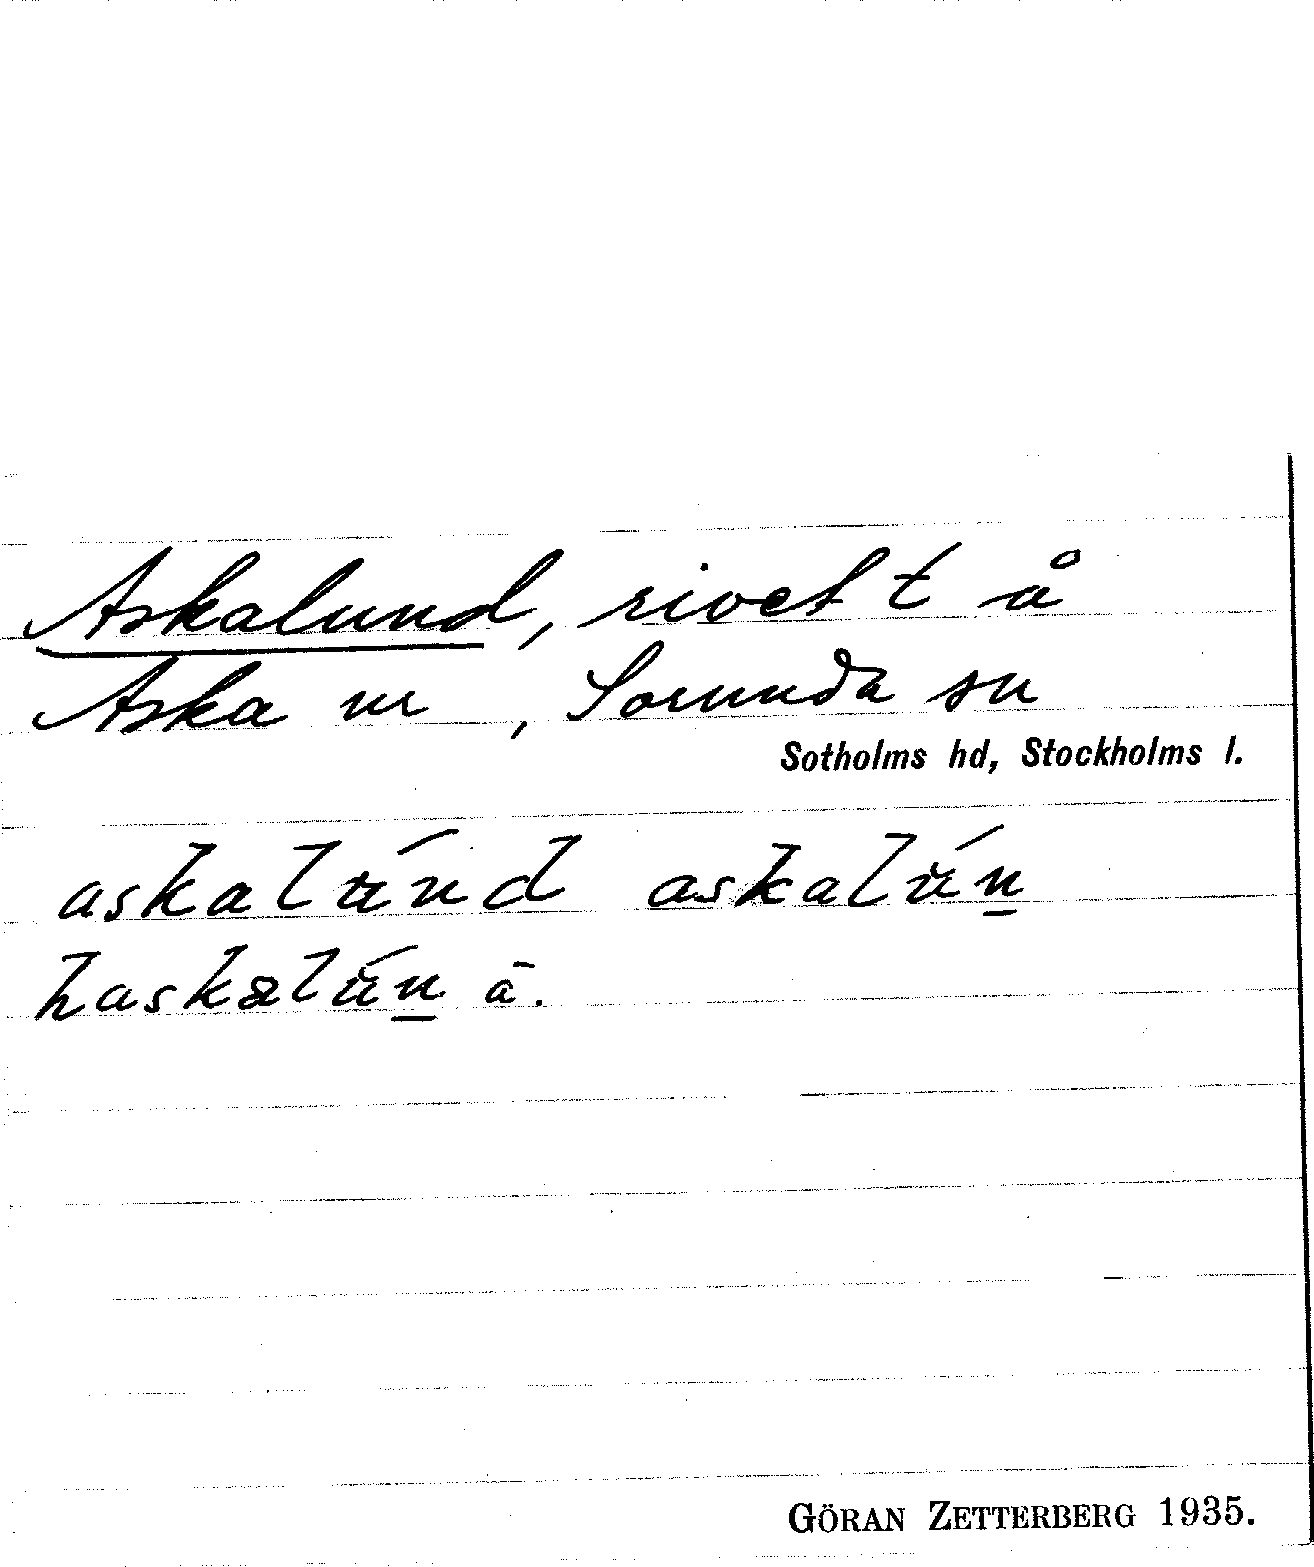 Askalund, rivet t å
Aska nr , Sorunda sn
Sotholms hd, Stockholms l.
askalŭ́nd askalŭ́n̲
haskalŭ́n̲ ā.
GÖRAN ZETTERBERG 1935.